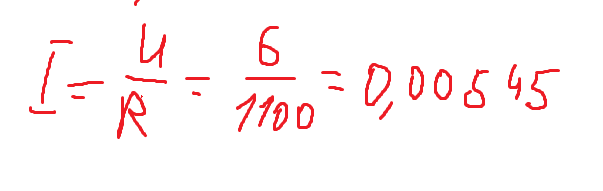 I = U/R = 6/1100 = 0,00545